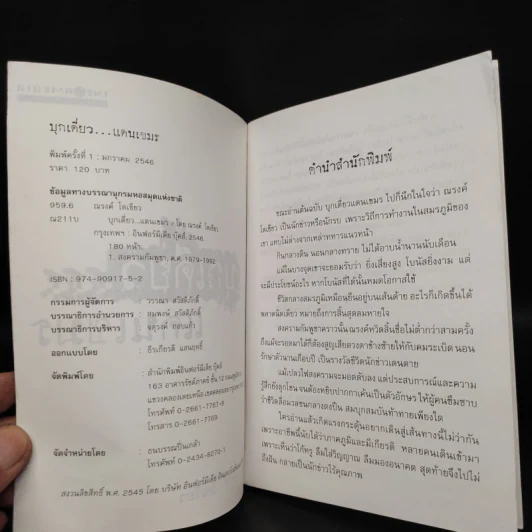 บุกเดี่ยว...แดนเขมร
พิมพ์ครั้งที่ 1 : มกราคม 2546
ราคา 120 บาท
ข้อมูลทางบรรณานุกรมหอสมุดแห่งชาติ
959.6 ณรงค์ โตเขียว
ณ211บ บุกเดี่ยว...แดนเขมร.- โดย ณรงค์ โตเขียว
กรุงเทพฯ : อินฟอร์มีเดีย บุ๊คส์, 2546.
180 หน้า.
1. สงครามกัมพูชา, ค.ศ. 1979-1992
ISBN : 974-90917-5-2
กรรมการผู้จัดการ : วรรณา สวัสดิภักดิ์
บรรณาธิการอำนวยการ : สมพงษ์ สวัสดิภักดิ์
บรรณาธิการบริหาร : จตุรงค์ กอบแก้ว
ออกแบบโดย : ธีรเกียรติ แสนฤทธิ์
จัดพิมพ์โดย : สำนักพิมพ์อินฟอร์มีเดีย บุ๊คส์
โทรศัพท์ 0-2661-7767-8
โทรสาร 0-2661-7767
จัดจำหน่ายโดย : ธนบรรณปิ่นเกล้า
โทรศัพท์ 0-2434-8270-1
สงวนลิขสิทธิ์ พ.ศ. 2545 โดย บริษัท อินฟอร์มีเดีย
คำนำสำนักพิมพ์
ขณะอ่านต้นฉบับ บุกเดี่ยวแดนเขมร ไปก็นึกในใจว่า ณรงค์
โตเขียว เป็นนักข่าวหรือนักรบ เพราะวิถีการทำงานในสมรภูมิของ
เขา แทบไม่ต่างจากเหล่าทหารแนวหน้า
กินกลางดิน นอนกลางทราย ไม่ได้อาบน้ำนานนับเดือน
แม้ในบางจุดเขาจะยอมรับว่า ยิ่งเสี่ยงสูง โบนัสยิ่งงาม แต่
จะมีประโยชน์อะไร หากโบนัสที่ได้นั้นหมดโอกาสใช้
ชีวิตกลางสมรภูมิเหมือนยืนอยู่บนเส้นด้าย อะไรก็เกิดขึ้นได้
พลาดนิดเดียว หมายถึงการสิ้นสุดลมหายใจ
สงครามกัมพูชาคราวนั้น ณรงค์หวิดสิ้นชื่อไม่ต่ำกว่าสามครั้ง
ถึงแม้จะรอดมาได้ก็ต้องสูญเสียดวงตาข้างซ้ายให้กับคมระเบิด นอน
รักษาตัวนานเกือบปี เป็นรางวัลชีวิตนักข่าวเดนตาย
แม้เปลวไฟสงครามจะมอดดับลง แต่ประสบการณ์และความ
รู้สึกยังลุกโชน จนต้องหยิบปากกาเค้นเป็นตัวอักษร ให้ผู้คนซึมซาบ
ว่าชีวิตสื่อมวลชนกลางดงปืน สมบุกสมบันท้าทายเพียงใด
ใครอ่านแล้วเกิดแรงกระตุ้นอยากเดินสู่เส้นทางนี้ไม่ว่ากัน
เพราะอาชีพนี้นับได้ว่าภาคภูมิและมีเกียรติ หลายคนเดินเข้ามา
เพราะเห็นว่าโก้หรู ลืมใส่วิญญาณ ลืมมองอนาคต สุดท้ายจึงไปไม่
ถึงฝัน กลายเป็นนักข่าวไร้คุณภาพ